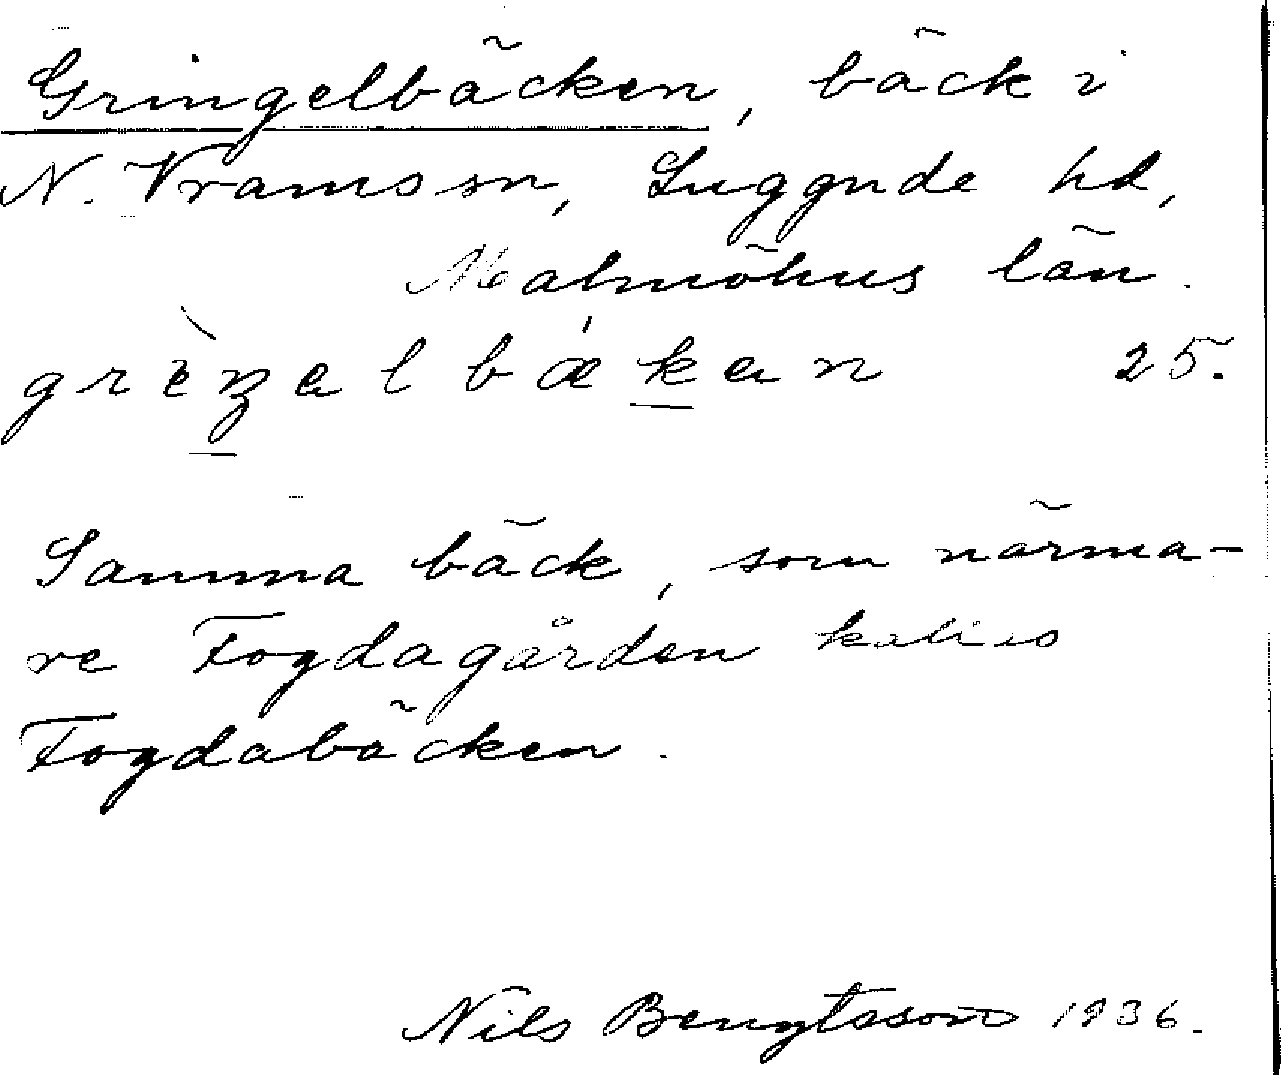 Gringelbäcken, bäck i
N. Vrams sn, Luggude hd,
Malmöhus län.
grèŋəlbǽkən 25.
Samma bäck, som närma-
re Fogdagården kallas
Fogdabäcken.
Nils Bengtsson 1936.